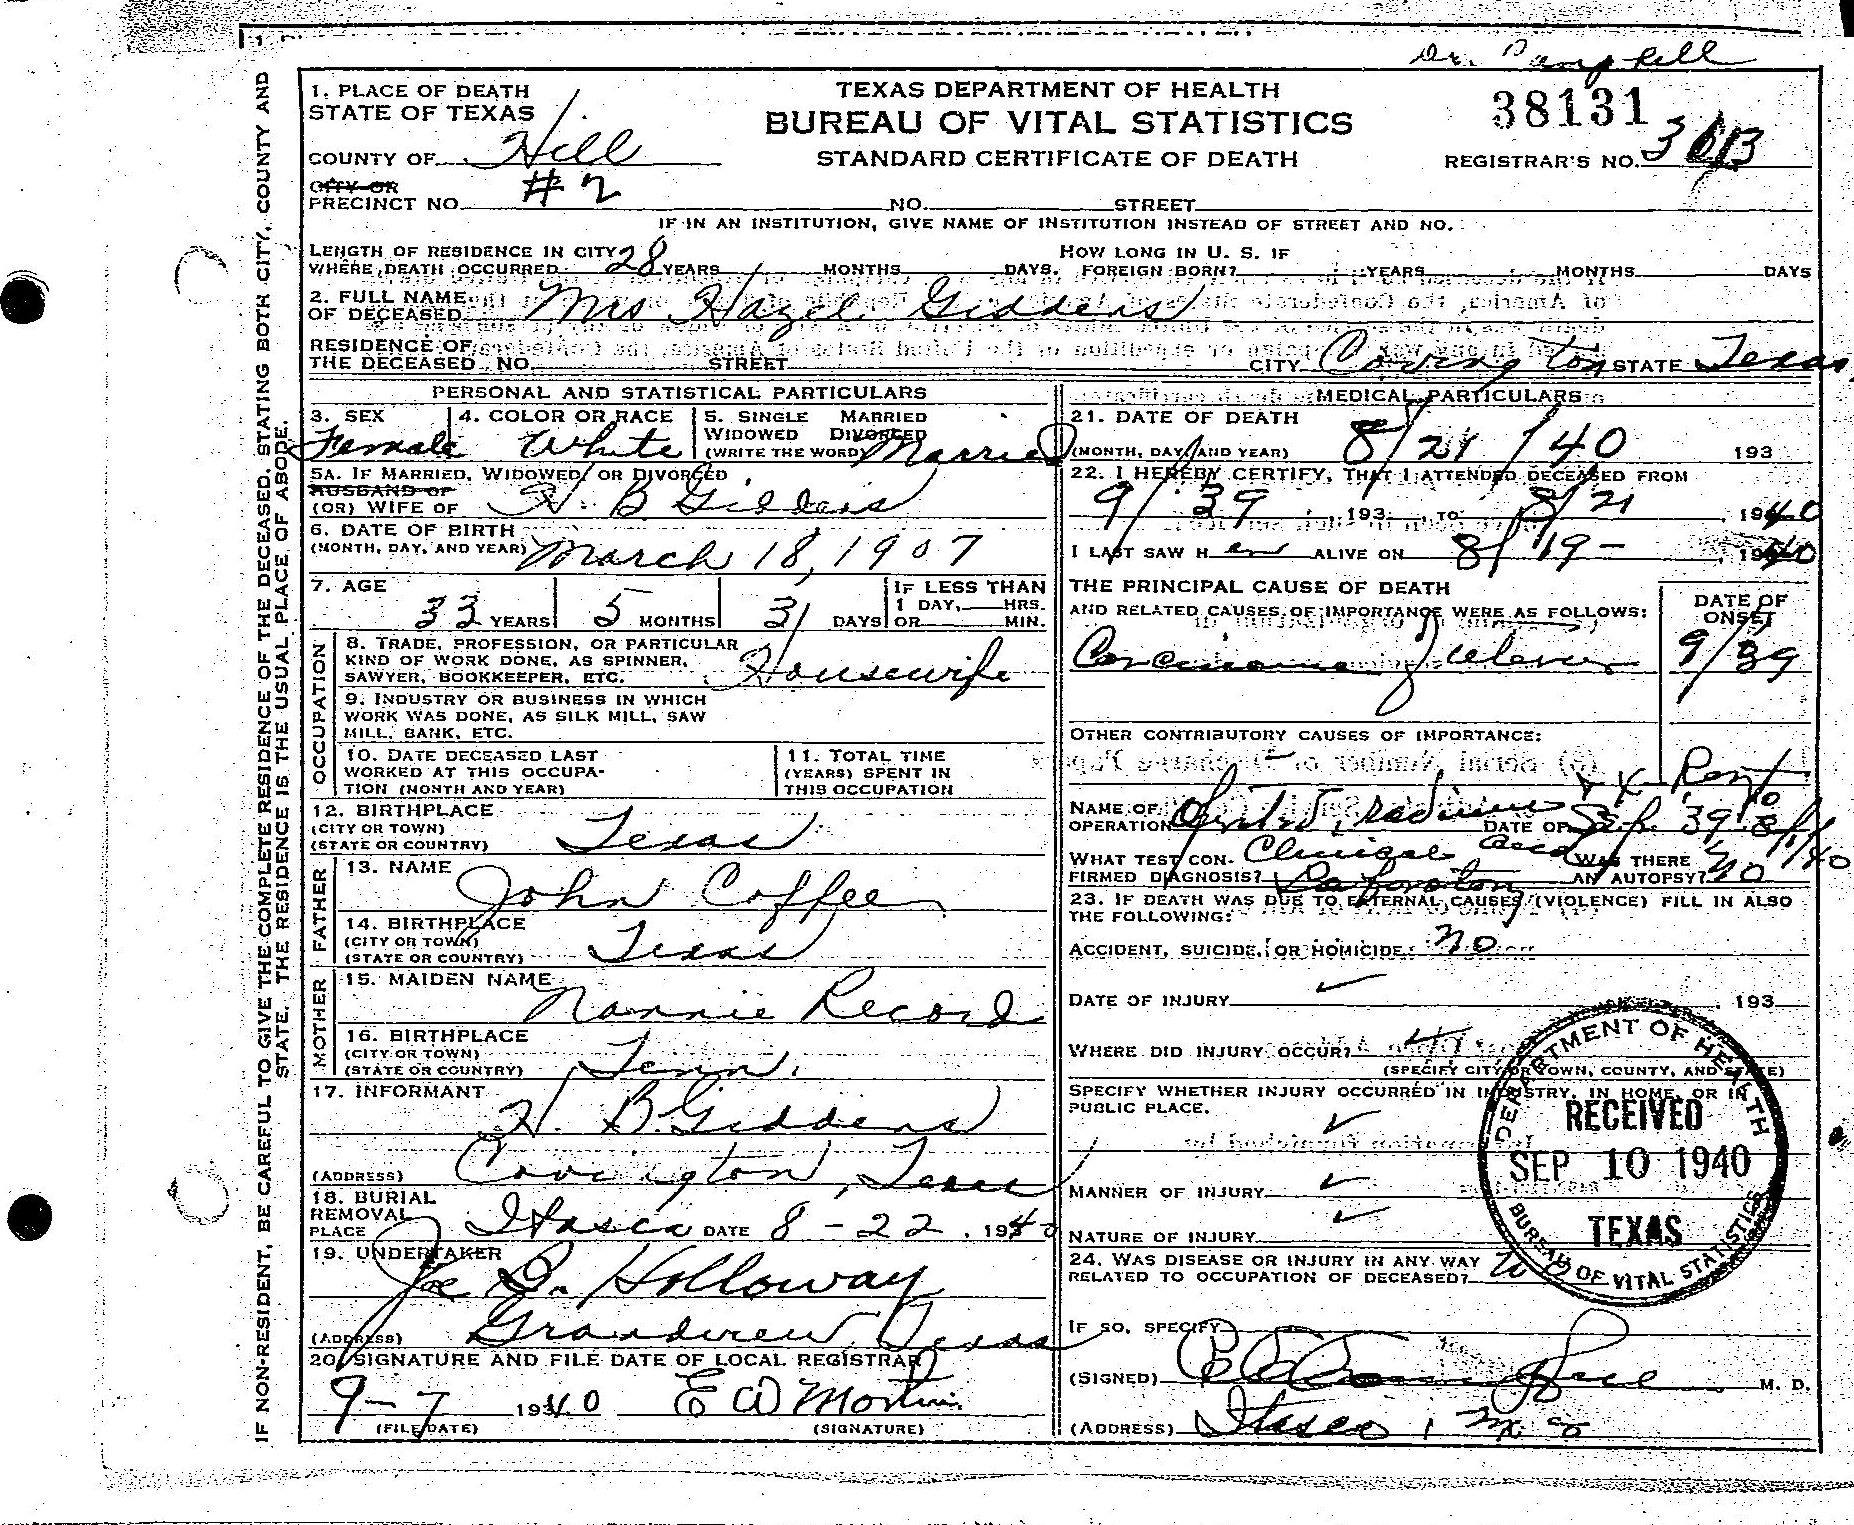 Dr. Campbell
1. PLACE OF DEATH
STATE OF TEXAS
COUNTY OF Hill
CITY OR
PRECINCT NO. #2 NO. STREET
TEXAS DEPARTMENT OF HEALTH
BUREAU OF VITAL STATISTICS
STANDARD CERTIFICATE OF DEATH
38131
REGISTRAR'S NO.
IF IN AN INSTITUTION, GIVE NAME OF INSTITUTION INSTEAD OF STREET AND NO.
LENGTH OF RESIDENCE IN CITY
WHERE DEATH OCCURRED 28 YEARS MONTHS DAYS.
HOW LONG IN U. S. IF
FOREIGN BORN? YEARS MONTHS DAYS
2. FULL NAME
OF DECEASED Mrs Hazel Giddens
RESIDENCE OF
THE DECEASED NO. STREET CITY Covington STATE Texas
PERSONAL AND STATISTICAL PARTICULARS
3. SEX Female
4. COLOR OR RACE White
5. SINGLE MARRIED
WIDOWED DIVORCED
(WRITE THE WORD) Married
5A. IF MARRIED, WIDOWED, OR DIVORCED
HUSBAND OF
(OR) WIFE OF H. B Giddens
6. DATE OF BIRTH
(MONTH, DAY, AND YEAR) March 18, 1907
7. AGE 33 YEARS 5 MONTHS 3 DAYS
IF LESS THAN
1 DAY, HRS.
OR MIN.
OCCUPATION
8. TRADE, PROFESSION, OR PARTICULAR
KIND OF WORK DONE, AS SPINNER,
SAWYER, BOOKKEEPER, ETC. Housewife
9. INDUSTRY OR BUSINESS IN WHICH
WORK WAS DONE, AS SILK MILL, SAW
MILL, BANK, ETC.
10. DATE DECEASED LAST
WORKED AT THIS OCCUPA-
TION (MONTH AND YEAR)
11. TOTAL TIME
(YEARS) SPENT IN
THIS OCCUPATION
12. BIRTHPLACE
(CITY OR TOWN)
(STATE OR COUNTRY) Texas
FATHER
13. NAME John Coffee
14. BIRTHPLACE
(CITY OR TOWN)
(STATE OR COUNTRY) Texas
MOTHER
15. MAIDEN NAME Nannie Record
16. BIRTHPLACE
(CITY OR TOWN)
(STATE OR COUNTRY) Tenn.
17. INFORMANT H. B. Giddens
(ADDRESS) Covington, Texas
18. BURIAL
REMOVAL
PLACE Itasca DATE 8-22, 1940
19. UNDERTAKER Joe B. Holloway
(ADDRESS) Grandview, Texas
20. SIGNATURE AND FILE DATE OF LOCAL REGISTRAR
9-7 1940 E W Martin
(FILE DATE) (SIGNATURE)
MEDICAL PARTICULARS
21. DATE OF DEATH
(MONTH, DAY, AND YEAR) 8/21/40 193
22. I HEREBY CERTIFY, THAT I ATTENDED DECEASED FROM
9/39 193 TO 8/21, 1940
I LAST SAW H er ALIVE ON 8/19- 1940
THE PRINCIPAL CAUSE OF DEATH
AND RELATED CAUSES OF IMPORTANCE WERE AS FOLLOWS:
DATE OF
ONSET
Carcinoma of uterus 9/39
OTHER CONTRIBUTORY CAUSES OF IMPORTANCE:
NAME OF
OPERATION radium DATE OF
WHAT TEST CON-
FIRMED DIAGNOSIS? Clinical and Laboratory
WAS THERE
AN AUTOPSY? No
23. IF DEATH WAS DUE TO EXTERNAL CAUSES (VIOLENCE) FILL IN ALSO
THE FOLLOWING:
ACCIDENT, SUICIDE, OR HOMICIDE: No
DATE OF INJURY , 193
WHERE DID INJURY OCCUR?
(SPECIFY CITY OR TOWN, COUNTY, AND STATE)
SPECIFY WHETHER INJURY OCCURRED IN INDUSTRY, IN HOME, OR IN
PUBLIC PLACE.
MANNER OF INJURY
NATURE OF INJURY
24. WAS DISEASE OR INJURY IN ANY WAY
RELATED TO OCCUPATION OF DECEASED? No
IF SO, SPECIFY
(SIGNED) Campbell M. D.
(ADDRESS) Itasca
DEPARTMENT OF HEALTH
RECEIVED
SEP 10 1940
TEXAS
BUREAU OF VITAL STATISTICS
IF NON-RESIDENT, BE CAREFUL TO GIVE THE COMPLETE RESIDENCE OF THE DECEASED, STATING BOTH CITY, COUNTY AND
STATE. THE RESIDENCE IS THE USUAL PLACE OF ABODE.